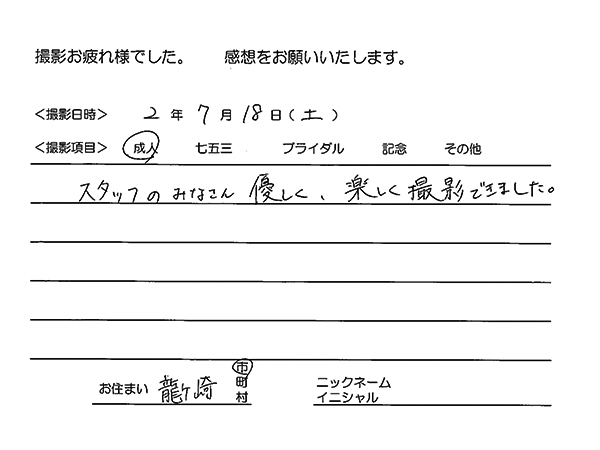 撮影お疲れ様でした。 感想をお願いいたします。
<撮影日時> 2 年 7 月 18 日(土)
<撮影項目> 成人 七五三 ブライダル 記念 その他
スタッフのみなさん優しく、楽しく撮影できました。
お住まい 龍ヶ崎 市 町 村
ニックネーム
イニシャル